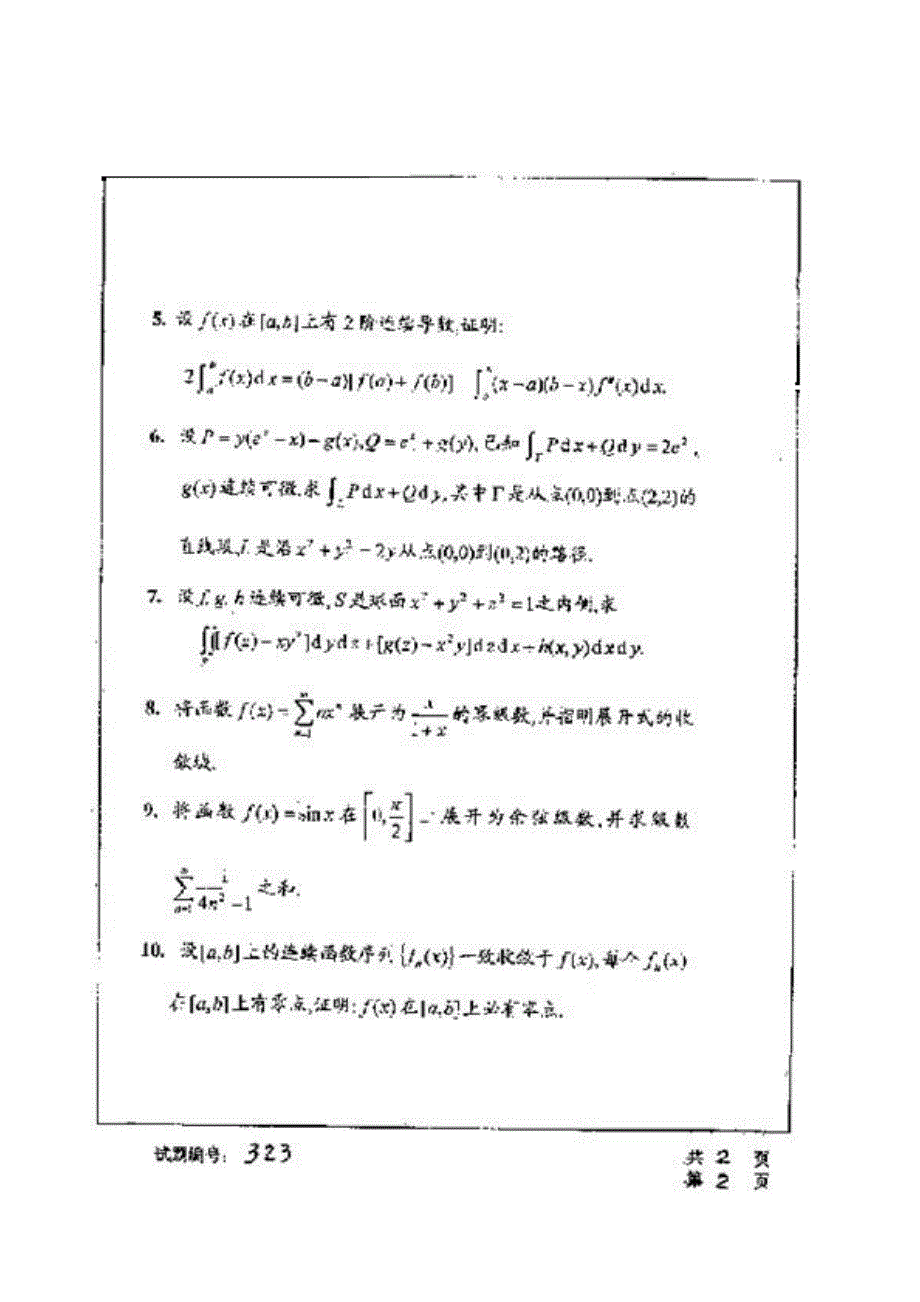 5. 设 f(x) 在 [a,b] 上有 2 阶连续导数,证明:
2∫_a^b f(x)dx = (b-a)[f(a)+f(b)] ∫ (x-a)(b-x)f″(x)dx.
6. 设 P = y(e^x - x) - g(x), Q = e^x + g(y), 已知 ∫_Γ Pdx+Qdy = 2e²,
g(x) 连续可微.求 ∫_L Pdx+Qdy, 其中 Γ 是从点(0,0)到点(2,2)的
直线段, L 是沿 x²+y² = 2y 从点(0,0)到(0,2)的路径.
7. 设 f, g, h 连续可微, S 是球面 x²+y²+z² = 1 之内侧,求
∬[f(z)-xy²]dydz+[g(z)-x²y]dzdx+h(x,y)dxdy.
8. 将函数 f(x) = ∑_{n=1}^∞ nx^n 展开为 x/(1+x) 的幂级数,并指明展开式的收
敛域.
9. 将函数 f(x) = sin x 在 [0, π/2] 上展开为余弦级数,并求级数
∑_{n=1}^∞ 1/(4n²-1) 之和.
10. 设[a,b]上的连续函数序列 {f_n(x)} 一致收敛于 f(x), 每个 f_n(x)
在[a,b]上有零点,证明: f(x) 在[a,b]上必有零点.
试题编号: 323
共 2 页
第 2 页